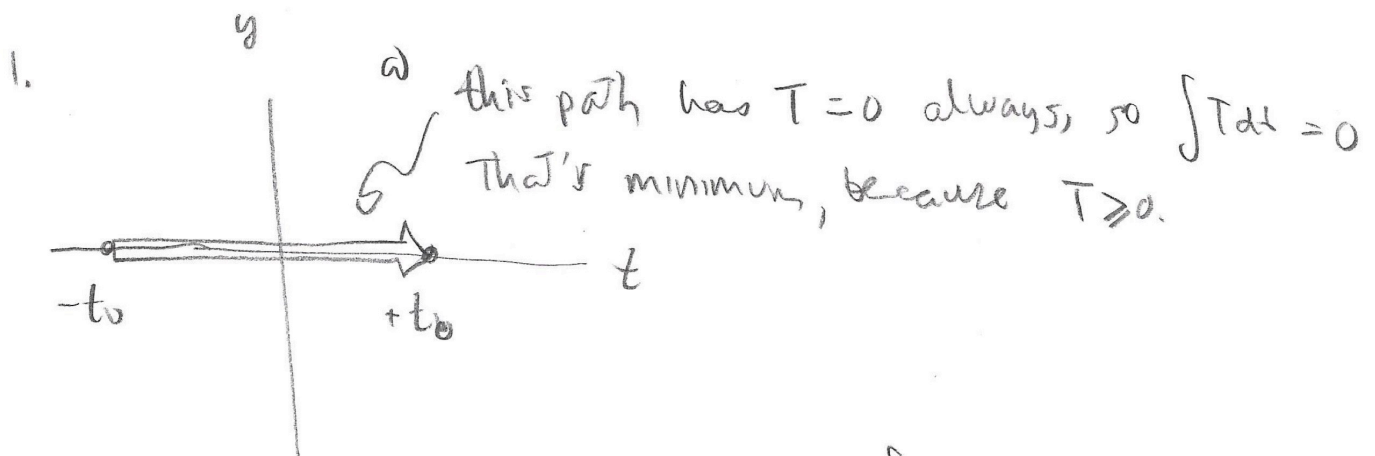 y
1.
a) this path has T = 0 always, so ∫T dt = 0
That's minimum, because T ⩾ 0.
t
-t₀
+t₀